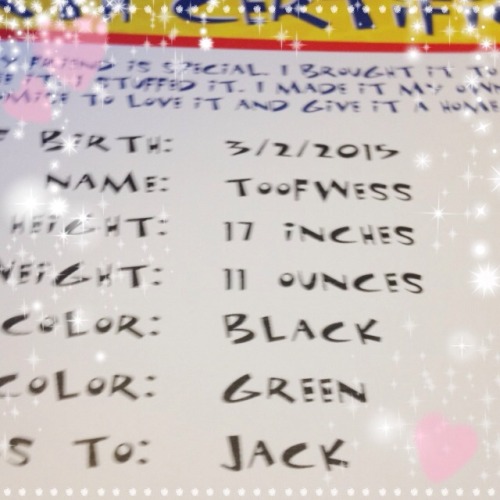 CERTIF
FRIEND IS SPECIAL. I BROUGHT IT TO
IT. I STUFFED IT. I MADE IT MY OWN
TO LOVE IT AND GIVE IT A HOME
BIRTH: 3/2/2015
NAME: TOOFWESS
HEIGHT: 17 INCHES
WEIGHT: 11 OUNCES
COLOR: BLACK
COLOR: GREEN
S TO: JACK